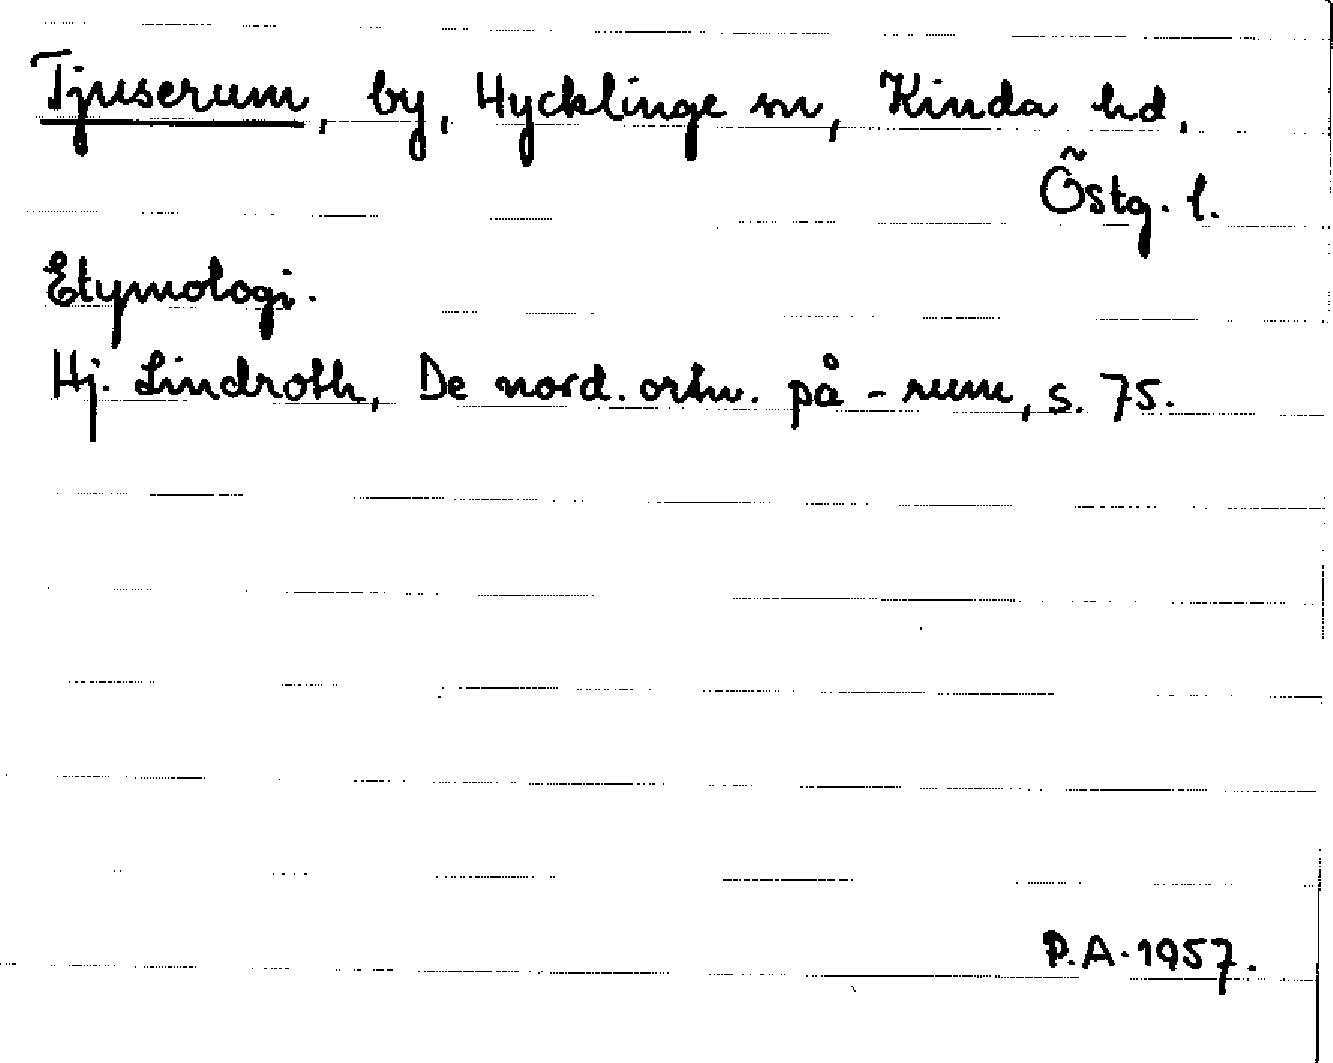 Tjuserum, by, Hycklinge sn, Kinda hd,
Östg. l.
Etymologi.
Hj. Lindroth, De nord. ortn. på -rum, s. 75.
P.A. 1957.